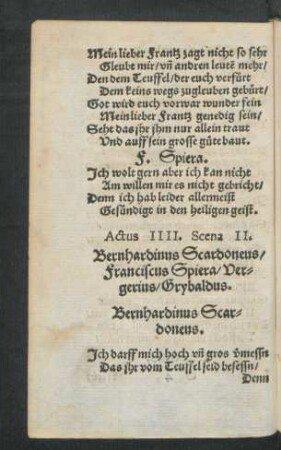 Mein lieber Frantz zagt nicht so sehr
Gleubt mir/ vñ andren leutẽ mehr/
Den dem Teuffel/ der euch verfürt
Dem keins wegs zugleuben gebürt/
Got wird euch vorwar wunder fein
Mein lieber Frantz genedig sein/
Seht das jhr jhm nur allein traut
Und auff sein grosse güte baut.
F. Spiera.
Ich wolt gern aber ich kan nicht
Am willen mir es nicht gebricht/
Denn ich hab leider allermeist
Gesündigt in den heiligen geist.
Actus IIII. Scena II.
Bernhardinus Scardoneus/
Franciscus Spiera/ Ver-
gerius/ Grybaldus.
Bernhardinus Scar-
doneus.
Ich darff mich hoch vñ gros ṽmessn
Das jhr vom Teuffel seid besessn/
Denn